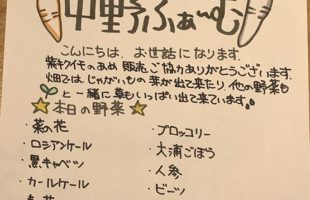 中野ふぁーむ
こんにちは、お世話になります。
紫キクイモのあめ 販売ご協力ありがとうございます。
畑では、じゃがいもの芽が出て来たり、他の野菜も
と一緒に草もいっぱい出て来ています。
本日の野菜
・菜の花
・ロシアンケール
・黒キャベツ
・カールケール
・ブロッコリー
・大浦ごぼう
・人参
・ビーツ